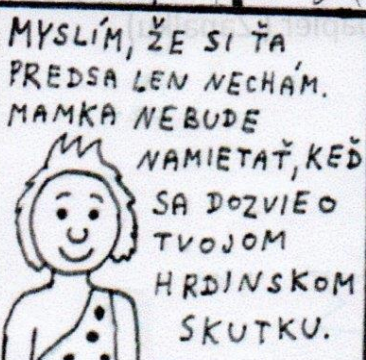 MYSLÍM, ŽE SI ŤA
PREDSA LEN NECHÁM.
MAMKA NEBUDE
NAMIETAŤ, KEĎ
SA DOZVIE O
TVOJOM
HRDINSKOM
SKUTKU.